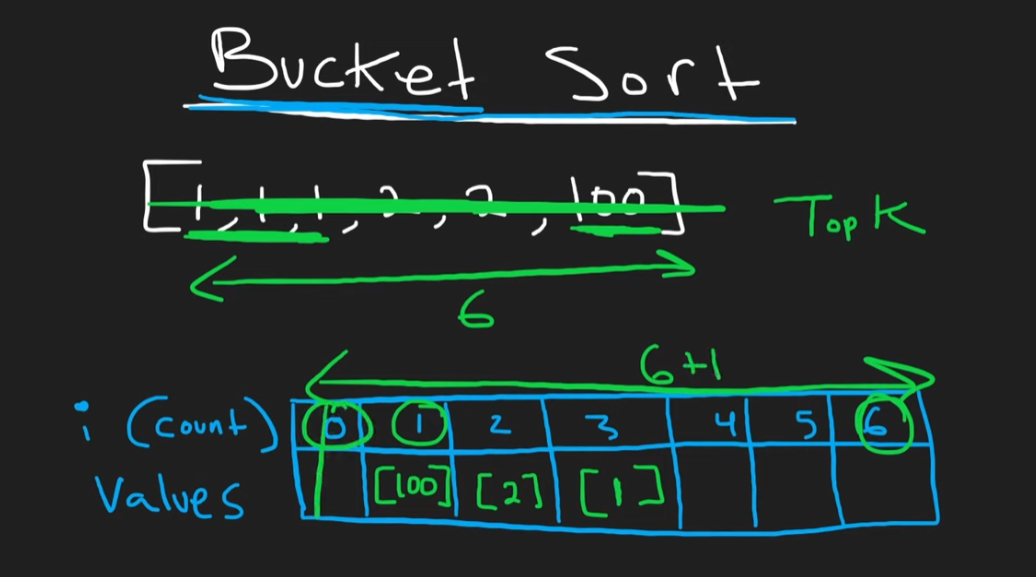 Bucket Sort
[1, 1, 1, 2, 2, 100]
Top K
6
6+1
i (count) 0 1 2 3 4 5 6
Values [100] [2] [1]